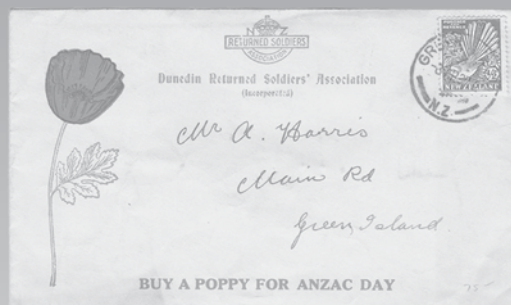 N Z
RETURNED SOLDIERS
ASSOCIATION
Dunedin Returned Soldiers' Association
(Incorporated)
NEW ZEALAND
N.Z.
Mr A. Harris
Main Rd
Green Island
BUY A POPPY FOR ANZAC DAY
75